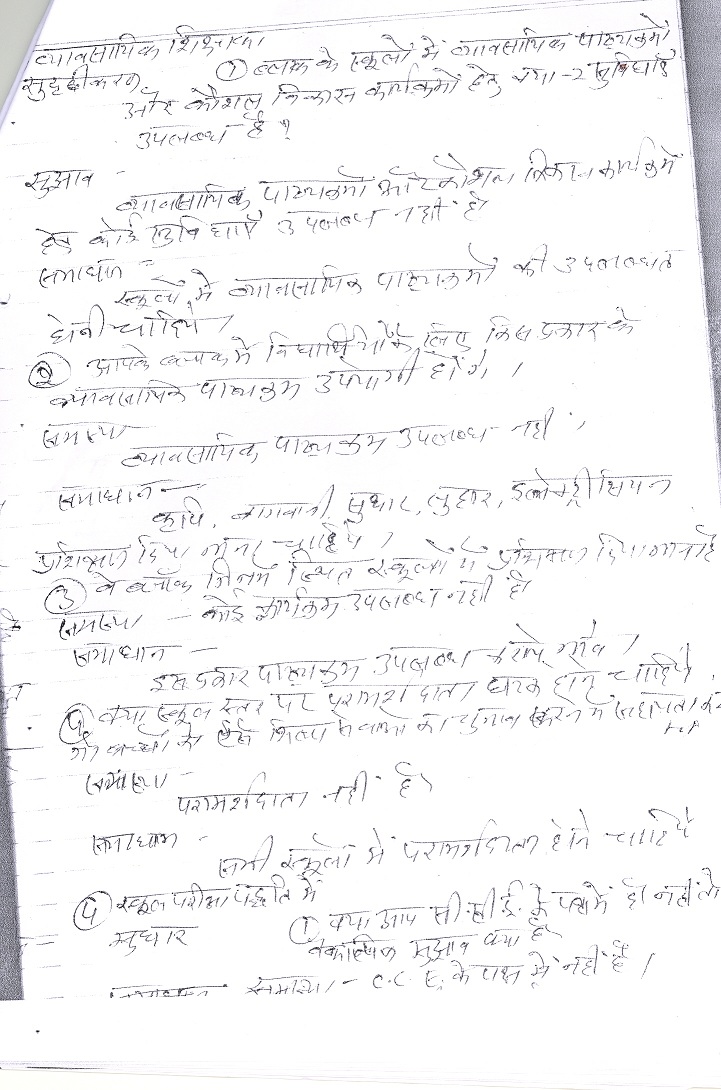 व्यावसायिक शिक्षा का
सुदृढीकरण ① ब्लाक के स्कूलों में व्यावसायिक पाठ्यक्रमों
और कौशल विकास कार्यक्रमों हेतु क्या-2 सुविधाएं
उपलब्ध है ?
सुझाव -
व्यावसायिक पाठ्यक्रमों और कौशल विकास कार्यक्रमों
हेतु कोई सुविधाएँ उपलब्ध नहीं है।
समाधान -
स्कूलों में व्यावसायिक पाठ्यक्रमों की उपलब्धता
होनी चाहिये।
② आपके ब्लाक में विद्यार्थियों के लिए किस प्रकार के
व्यावसायिक पाठ्यक्रम उपयोगी होंगे।
समस्या
व्यावसायिक पाठ्यक्रम उपलब्ध नहीं।
समाधान -
कृषि, बागवानी, सुथार, लुहार, इलेक्ट्रीसियन
प्रशिक्षण दिया जाना चाहिये।
③ वे ब्लॉक जिनमें स्थित स्कूलों में प्रशिक्षण दिया
समस्या - कोई कार्यक्रम उपलब्ध नहीं है।
समाधान -
इस प्रकार पाठ्यक्रम उपलब्ध कराये
क्या स्कूल स्तर पर परामर्शदाता होने चाहिये
जो बच्चों को का चुनाव करने में सहायता
समस्या -
परामर्शदाता नहीं है।
समाधान -
सभी स्कूलों में परामर्शदाता होने चाहिये
④ स्कूल परीक्षा पद्धति में
सुधार ① क्या आप सी.सी.ई. के पक्ष में है। नहीं तो
वैकल्पिक सुझाव क्या है
समस्या - C.C.E. के पक्ष में नहीं है।